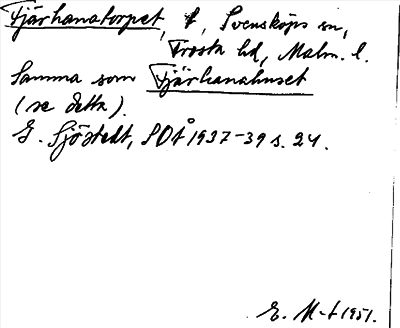 Tjärhanatorpet, t, Svensköps sn,
Frosta hd, Malm. l.
Samma som Tjärhanahuset
(se detta).
G. Sjöstedt, SOÅ 1937-39 s. 24.
E. M-t 1951.